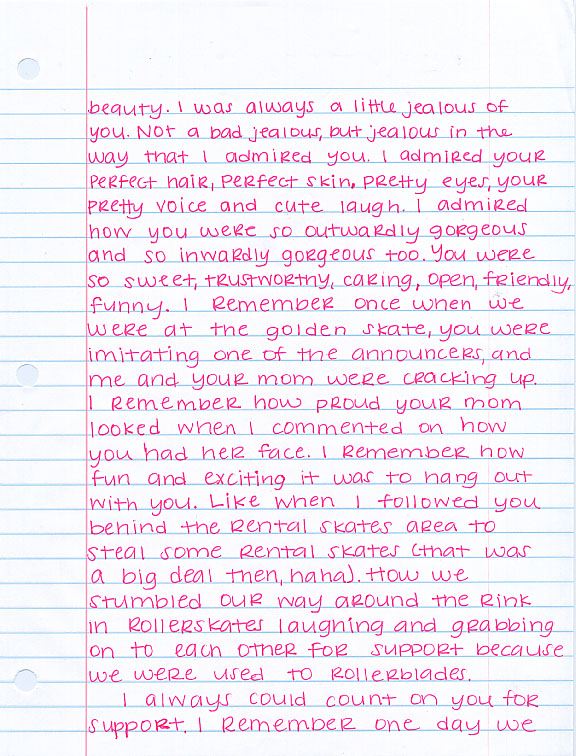 beauty. I was always a little jealous of
you. Not a bad jealous, but jealous in the
way that I admired you. I admired your
perfect hair, perfect skin, pretty eyes, your
pretty voice and cute laugh. I admired
how you were so outwardly gorgeous
and so inwardly gorgeous too. You were
so sweet, trustworthy, caring, open, friendly,
funny. I remember once when we
were at the golden skate, you were
imitating one of the announcers, and
me and your mom were cracking up.
I remember how proud your mom
looked when I commented on how
you had her face. I remember how
fun and exciting it was to hang out
with you. Like when I followed you
behind the rental skates area to
steal some rental skates (that was
a big deal then, haha). How we
stumbled our way around the rink
in rollerskates laughing and grabbing
on to each other for support because
we were used to rollerblades.
I always could count on you for
support. I remember one day we